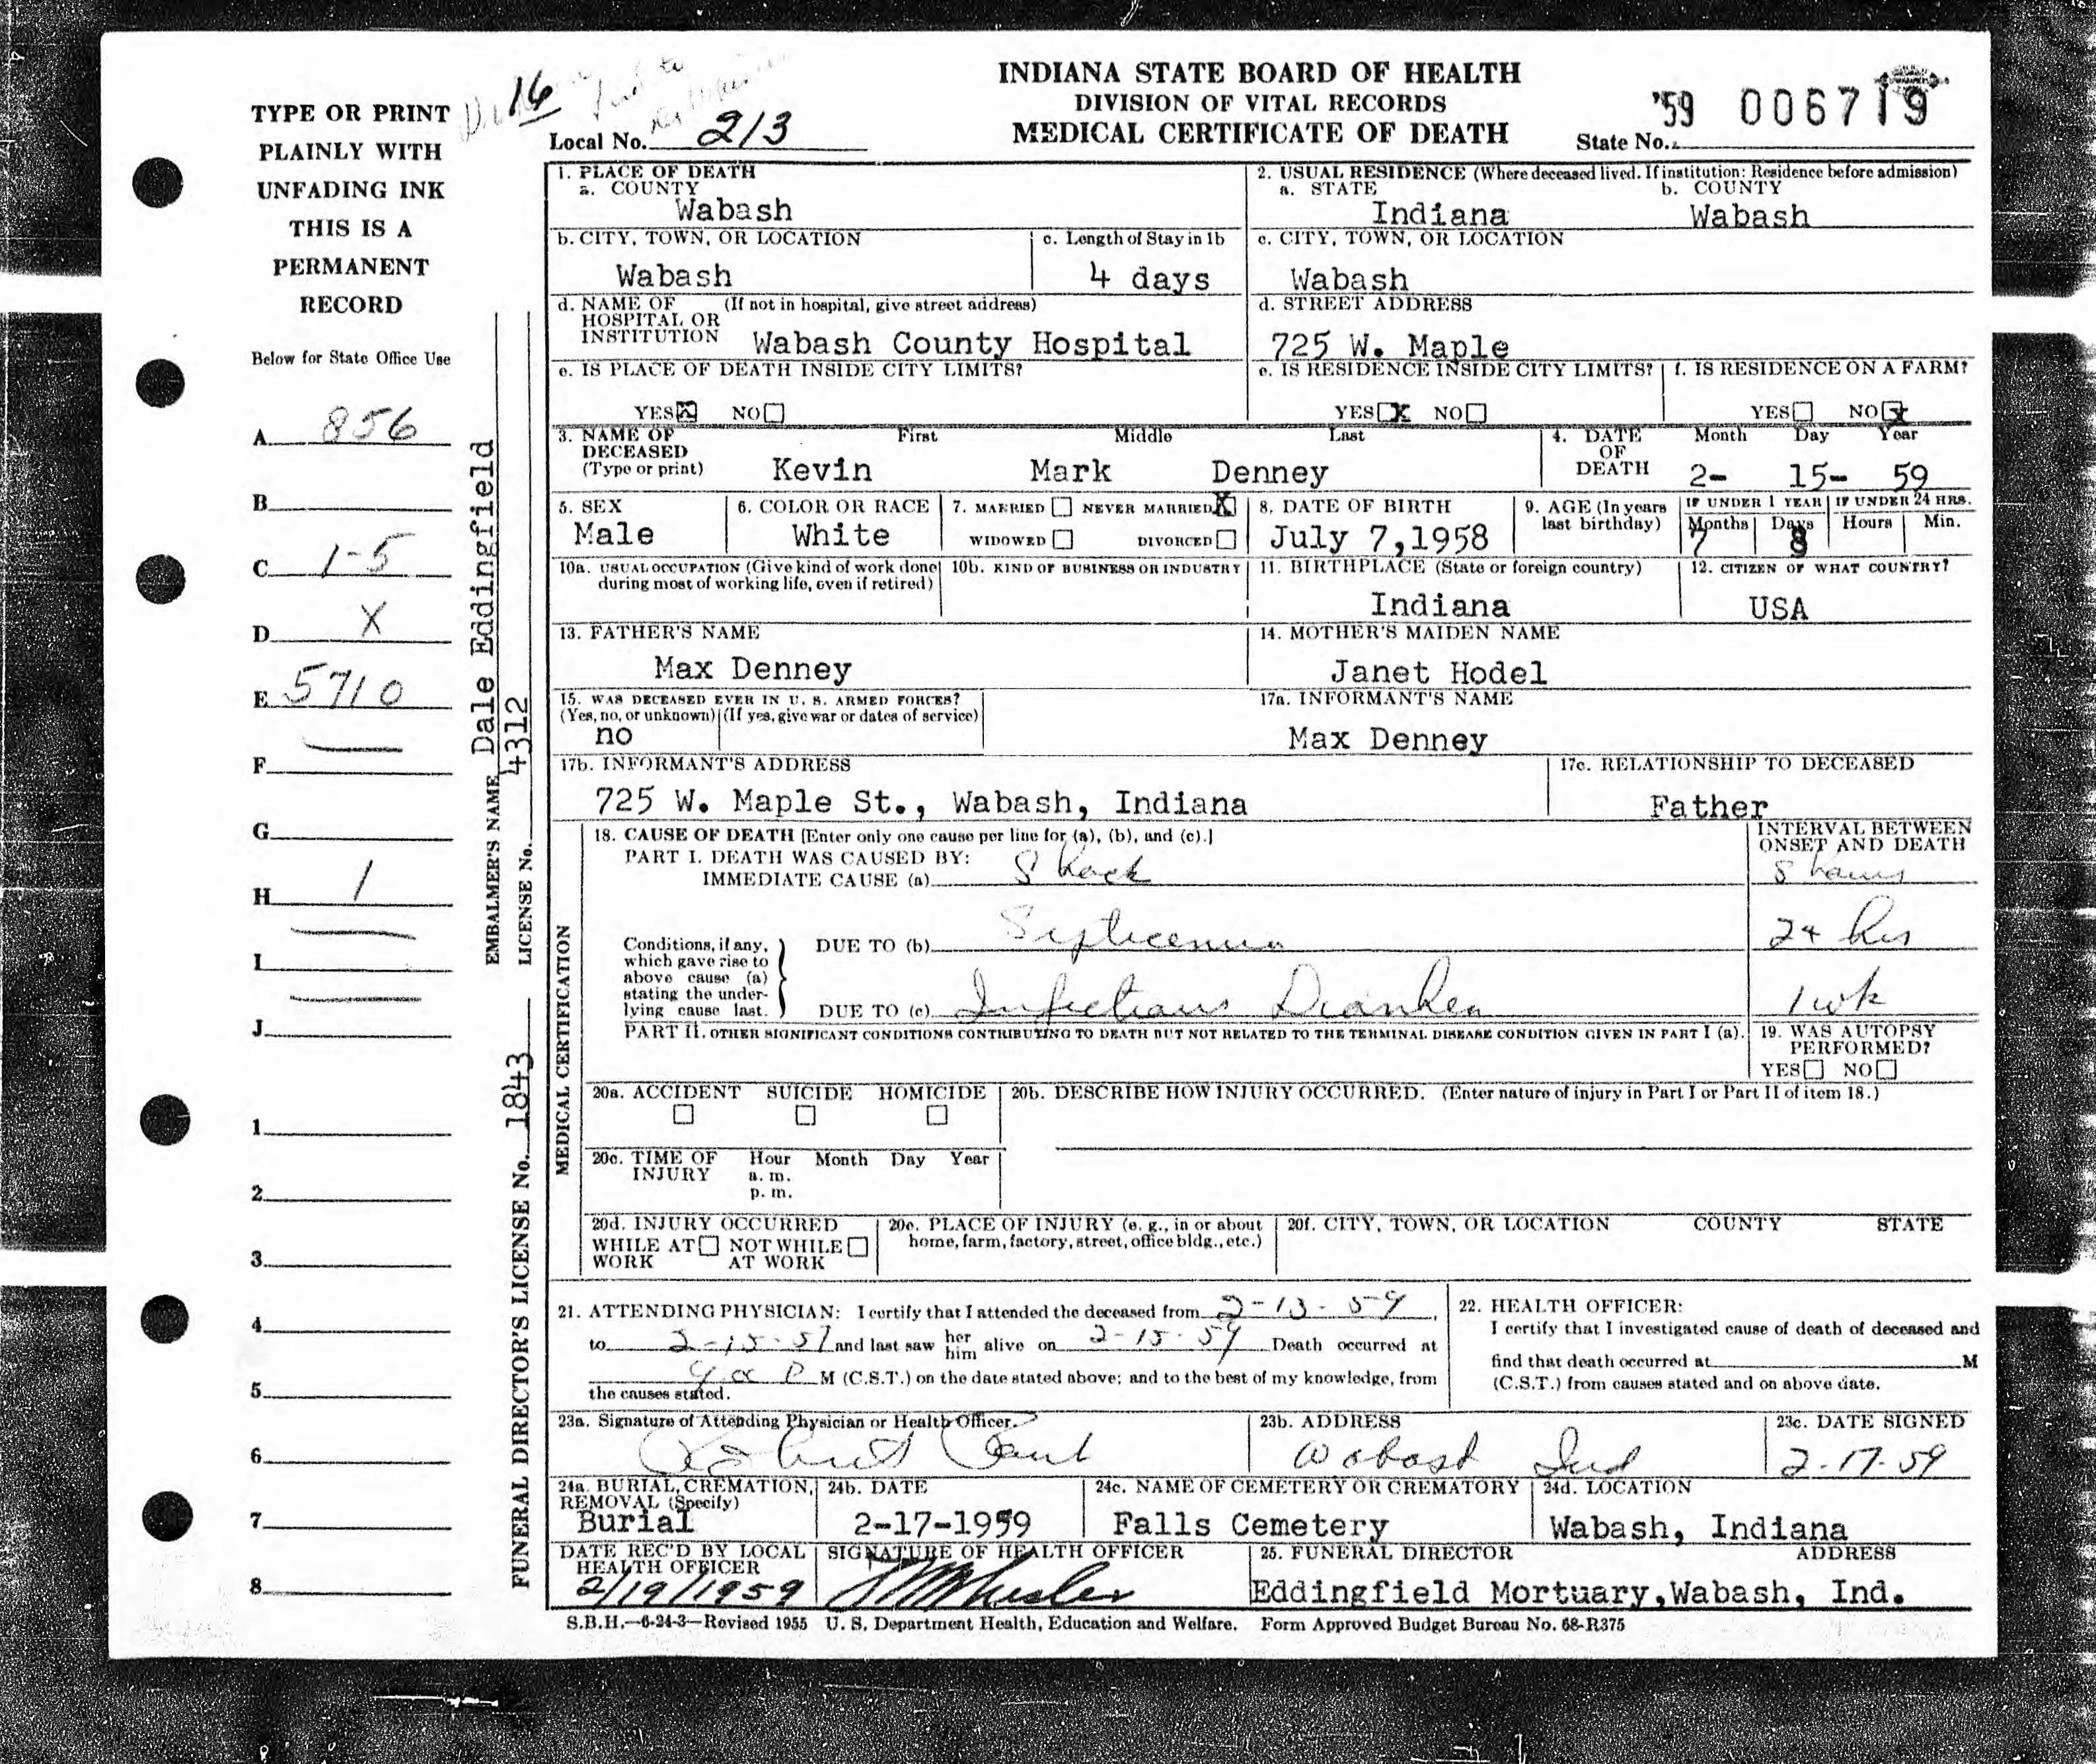 INDIANA STATE BOARD OF HEALTH
DIVISION OF VITAL RECORDS
MEDICAL CERTIFICATE OF DEATH
16
Local No. 213
State No. '59 006719
TYPE OR PRINT
PLAINLY WITH
UNFADING INK
THIS IS A
PERMANENT
RECORD
Below for State Office Use
A 856
B
C 1-5
D X
E 5710
F
G
H 1
I
J
1
2
3
4
5
6
7
8
EMBALMER'S NAME Dale Eddingfield
LICENSE No. 4312
FUNERAL DIRECTOR'S LICENSE No. 1843
1. PLACE OF DEATH
a. COUNTY
Wabash
2. USUAL RESIDENCE (Where deceased lived. If institution: Residence before admission)
a. STATE b. COUNTY
Indiana Wabash
b. CITY, TOWN, OR LOCATION
Wabash
c. Length of Stay in 1b
4 days
c. CITY, TOWN, OR LOCATION
Wabash
d. NAME OF (If not in hospital, give street address)
HOSPITAL OR
INSTITUTION Wabash County Hospital
d. STREET ADDRESS
725 W. Maple
e. IS PLACE OF DEATH INSIDE CITY LIMITS?
YES X NO
e. IS RESIDENCE INSIDE CITY LIMITS?
YES X NO
f. IS RESIDENCE ON A FARM?
YES NO X
3. NAME OF First Middle Last
DECEASED
(Type or print) Kevin Mark Denney
4. DATE Month Day Year
OF
DEATH 2- 15- 59
5. SEX
Male
6. COLOR OR RACE
White
7. MARRIED NEVER MARRIED X
WIDOWED DIVORCED
8. DATE OF BIRTH
July 7,1958
9. AGE (In years
last birthday)
IF UNDER 1 YEAR IF UNDER 24 HRS.
Months Days Hours Min.
7 8
10a. USUAL OCCUPATION (Give kind of work done
during most of working life, even if retired)
10b. KIND OF BUSINESS OR INDUSTRY
11. BIRTHPLACE (State or foreign country)
Indiana
12. CITIZEN OF WHAT COUNTRY?
USA
13. FATHER'S NAME
Max Denney
14. MOTHER'S MAIDEN NAME
Janet Hodel
15. WAS DECEASED EVER IN U. S. ARMED FORCES?
(Yes, no, or unknown) (If yes, give war or dates of service)
no
17a. INFORMANT'S NAME
Max Denney
17b. INFORMANT'S ADDRESS
725 W. Maple St., Wabash, Indiana
17c. RELATIONSHIP TO DECEASED
Father
MEDICAL CERTIFICATION
18. CAUSE OF DEATH [Enter only one cause per line for (a), (b), and (c).]
INTERVAL BETWEEN
ONSET AND DEATH
PART I. DEATH WAS CAUSED BY:
IMMEDIATE CAUSE (a) Shock 8 hours
Conditions, if any,
which gave rise to
above cause (a)
stating the under-
lying cause last.
DUE TO (b) Septicemia 24 hrs
DUE TO (c) Infectious Diarrhea 1 wk
PART II. OTHER SIGNIFICANT CONDITIONS CONTRIBUTING TO DEATH BUT NOT RELATED TO THE TERMINAL DISEASE CONDITION GIVEN IN PART I (a).
19. WAS AUTOPSY
PERFORMED?
YES NO
20a. ACCIDENT SUICIDE HOMICIDE
20b. DESCRIBE HOW INJURY OCCURRED. (Enter nature of injury in Part I or Part II of item 18.)
20c. TIME OF Hour Month Day Year
INJURY a. m.
p. m.
20d. INJURY OCCURRED
WHILE AT NOT WHILE
WORK AT WORK
20e. PLACE OF INJURY (e. g., in or about
home, farm, factory, street, office bldg., etc.)
20f. CITY, TOWN, OR LOCATION COUNTY STATE
21. ATTENDING PHYSICIAN: I certify that I attended the deceased from 2-13-59,
to 2-15-59 and last saw her him alive on 2-15-59 Death occurred at
P M (C.S.T.) on the date stated above; and to the best of my knowledge, from
the causes stated.
22. HEALTH OFFICER:
I certify that I investigated cause of death of deceased and
find that death occurred at M
(C.S.T.) from causes stated and on above date.
23a. Signature of Attending Physician or Health Officer.
Robert
23b. ADDRESS
Wabash Ind
23c. DATE SIGNED
2-17-59
24a. BURIAL, CREMATION,
REMOVAL (Specify)
Burial
24b. DATE
2-17-1959
24c. NAME OF CEMETERY OR CREMATORY
Falls Cemetery
24d. LOCATION
Wabash, Indiana
DATE REC'D BY LOCAL
HEALTH OFFICER
2/19/1959
SIGNATURE OF HEALTH OFFICER
25. FUNERAL DIRECTOR ADDRESS
Eddingfield Mortuary,Wabash, Ind.
S.B.H.—6-24-3—Revised 1955 U. S. Department Health, Education and Welfare. Form Approved Budget Bureau No. 68-R375